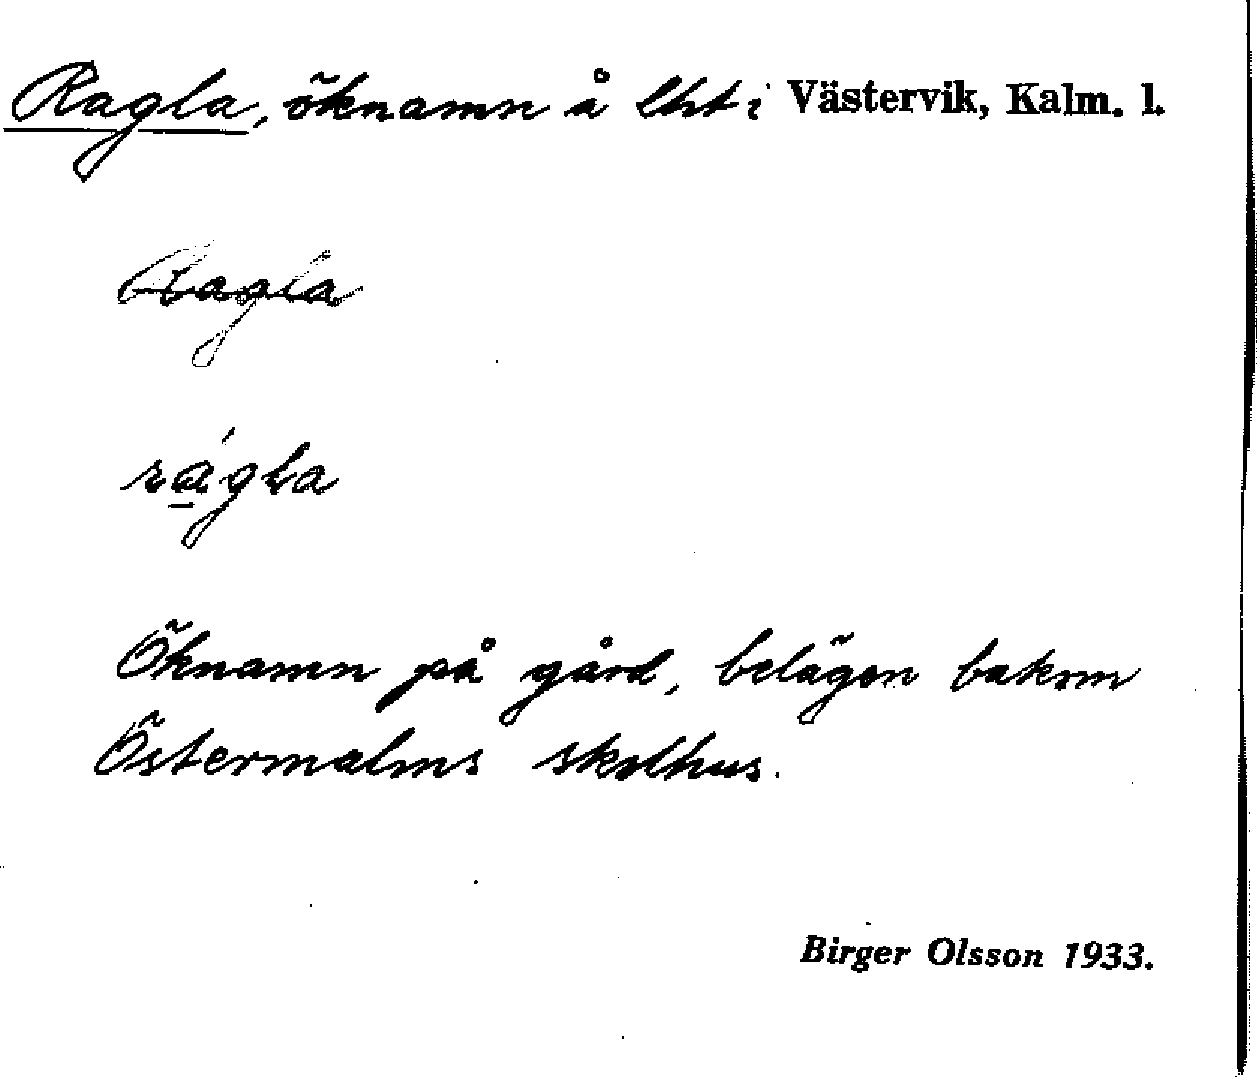 Ragla, öknamn å lht i Västervik, Kalm. l.
Ragla
rágla
Öknamn på gård, belägen bakom
Östermalms skolhus.
Birger Olsson 1933.